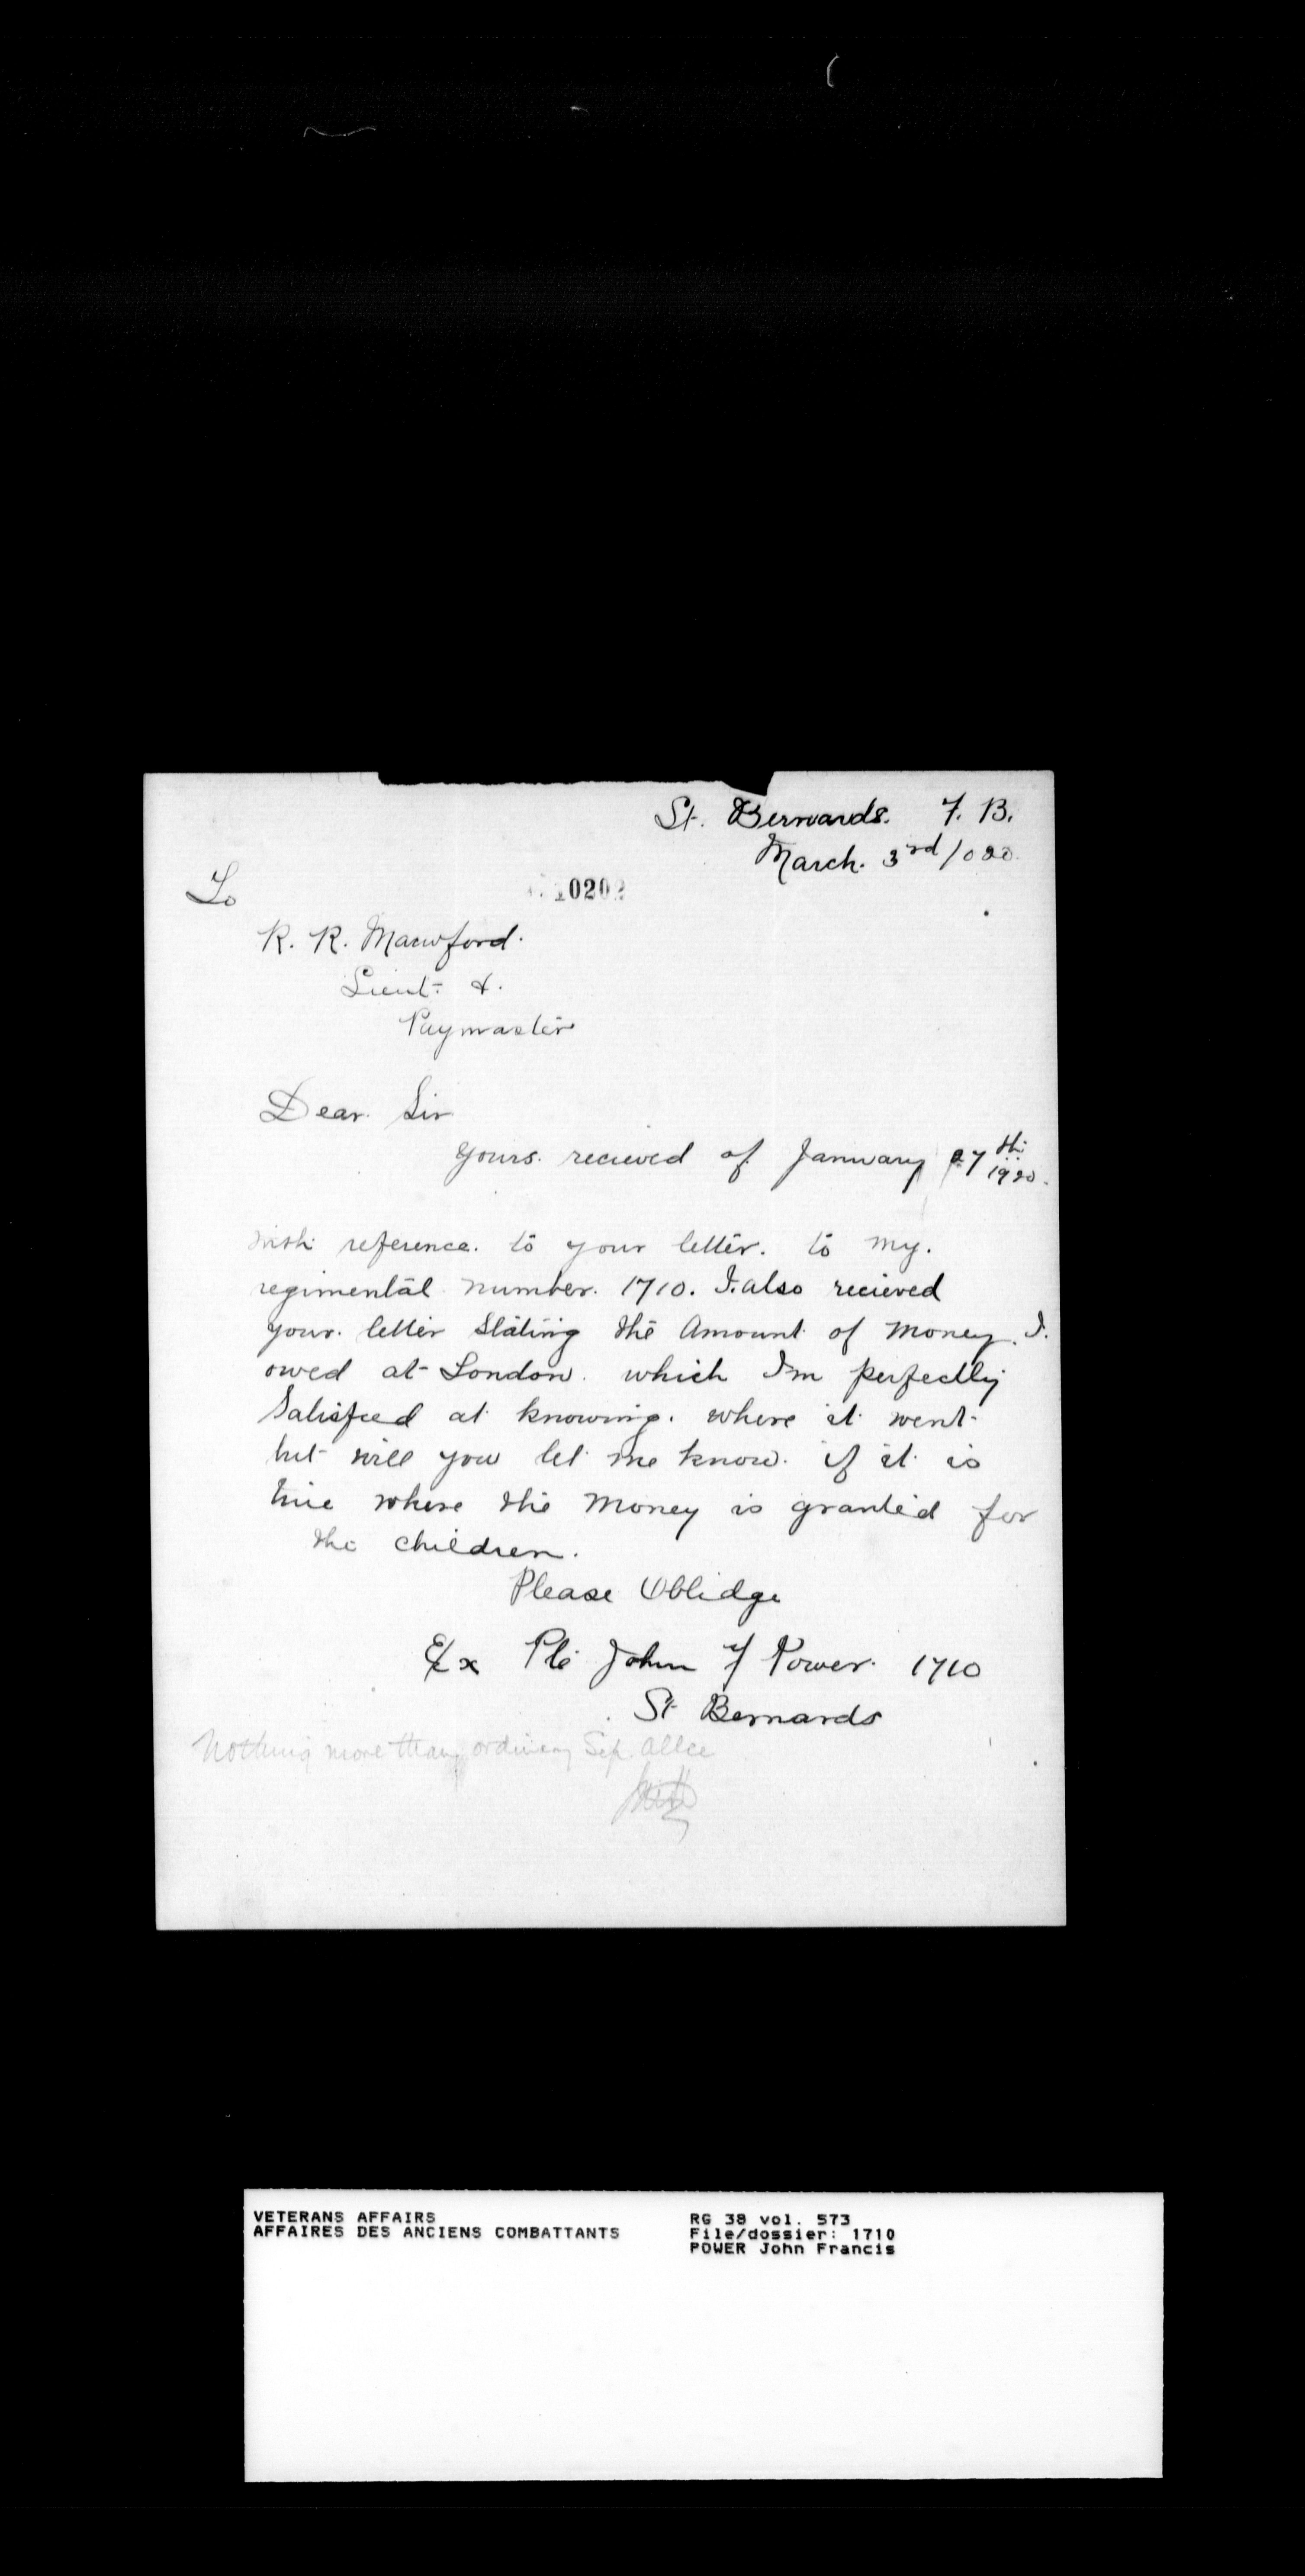 St. Bernards. F. B.
March. 3rd /020.
To
10202
R. R. Mawford.
Lieut: &.
Paymaster
Dear. Sir
yours. recieved of January 27th 1920.
With reference. to your letter. to my.
regimental number. 1710. I. also recieved
your. letter stating the Amount of money. I.
owed at London. which I'm perfectly
Satisfied at knowing. where it went.
but will you let me know. if it is
true where the money is granted for
the children.
Please Oblidge
Ex Pte John F Power. 1710
St Bernards
Nothing more than ordinary Sep. Allce
VETERANS AFFAIRS
AFFAIRES DES ANCIENS COMBATTANTS
RG 38 vol. 573
File/dossier: 1710
POWER John Francis